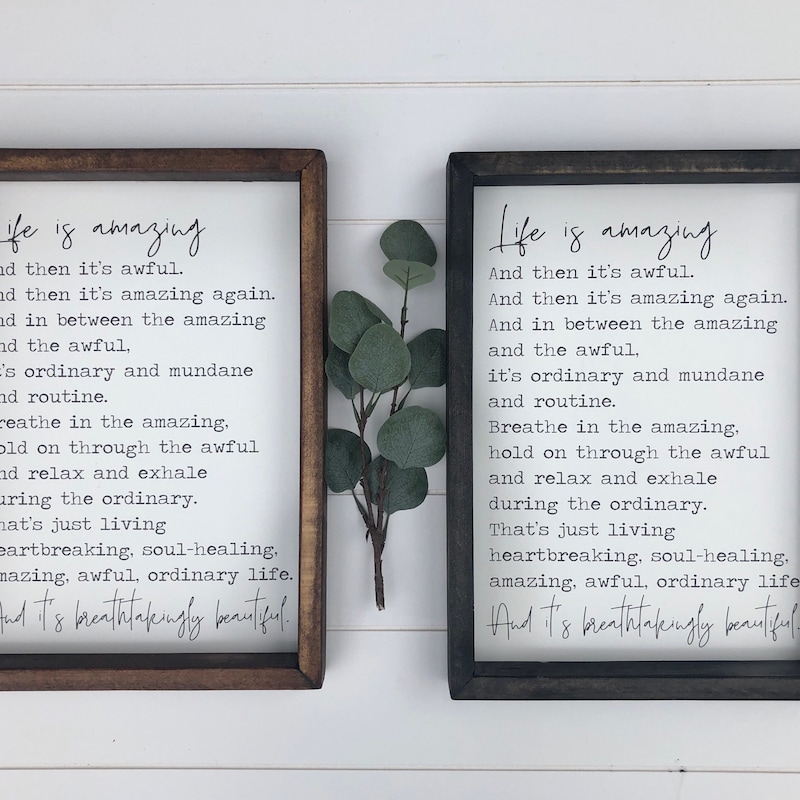 ife is amazing
nd then it's awful.
nd then it's amazing again.
nd in between the amazing
nd the awful,
t's ordinary and mundane
nd routine.
reathe in the amazing,
old on through the awful
nd relax and exhale
uring the ordinary.
hat's just living
eartbreaking, soul-healing,
mazing, awful, ordinary life.
And it's breathtakingly beautiful.
Life is amazing
And then it's awful.
And then it's amazing again.
And in between the amazing
and the awful,
it's ordinary and mundane
and routine.
Breathe in the amazing,
hold on through the awful
and relax and exhale
during the ordinary.
That's just living
heartbreaking, soul-healing,
amazing, awful, ordinary life
And it's breathtakingly beautiful.